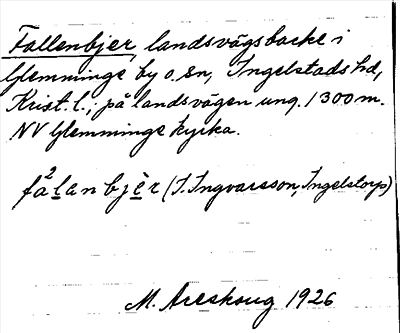 Fallenbjer, landsvägsbacke i
Glemminge by o. sn, Ingelstads hd,
Krist. l.; på landsvägen ung. 1300 m.
NV Glemminge kyrka.
fa²lanbjèr (J. Ingvarsson, Ingelstorp)
M. Areskoug 1926